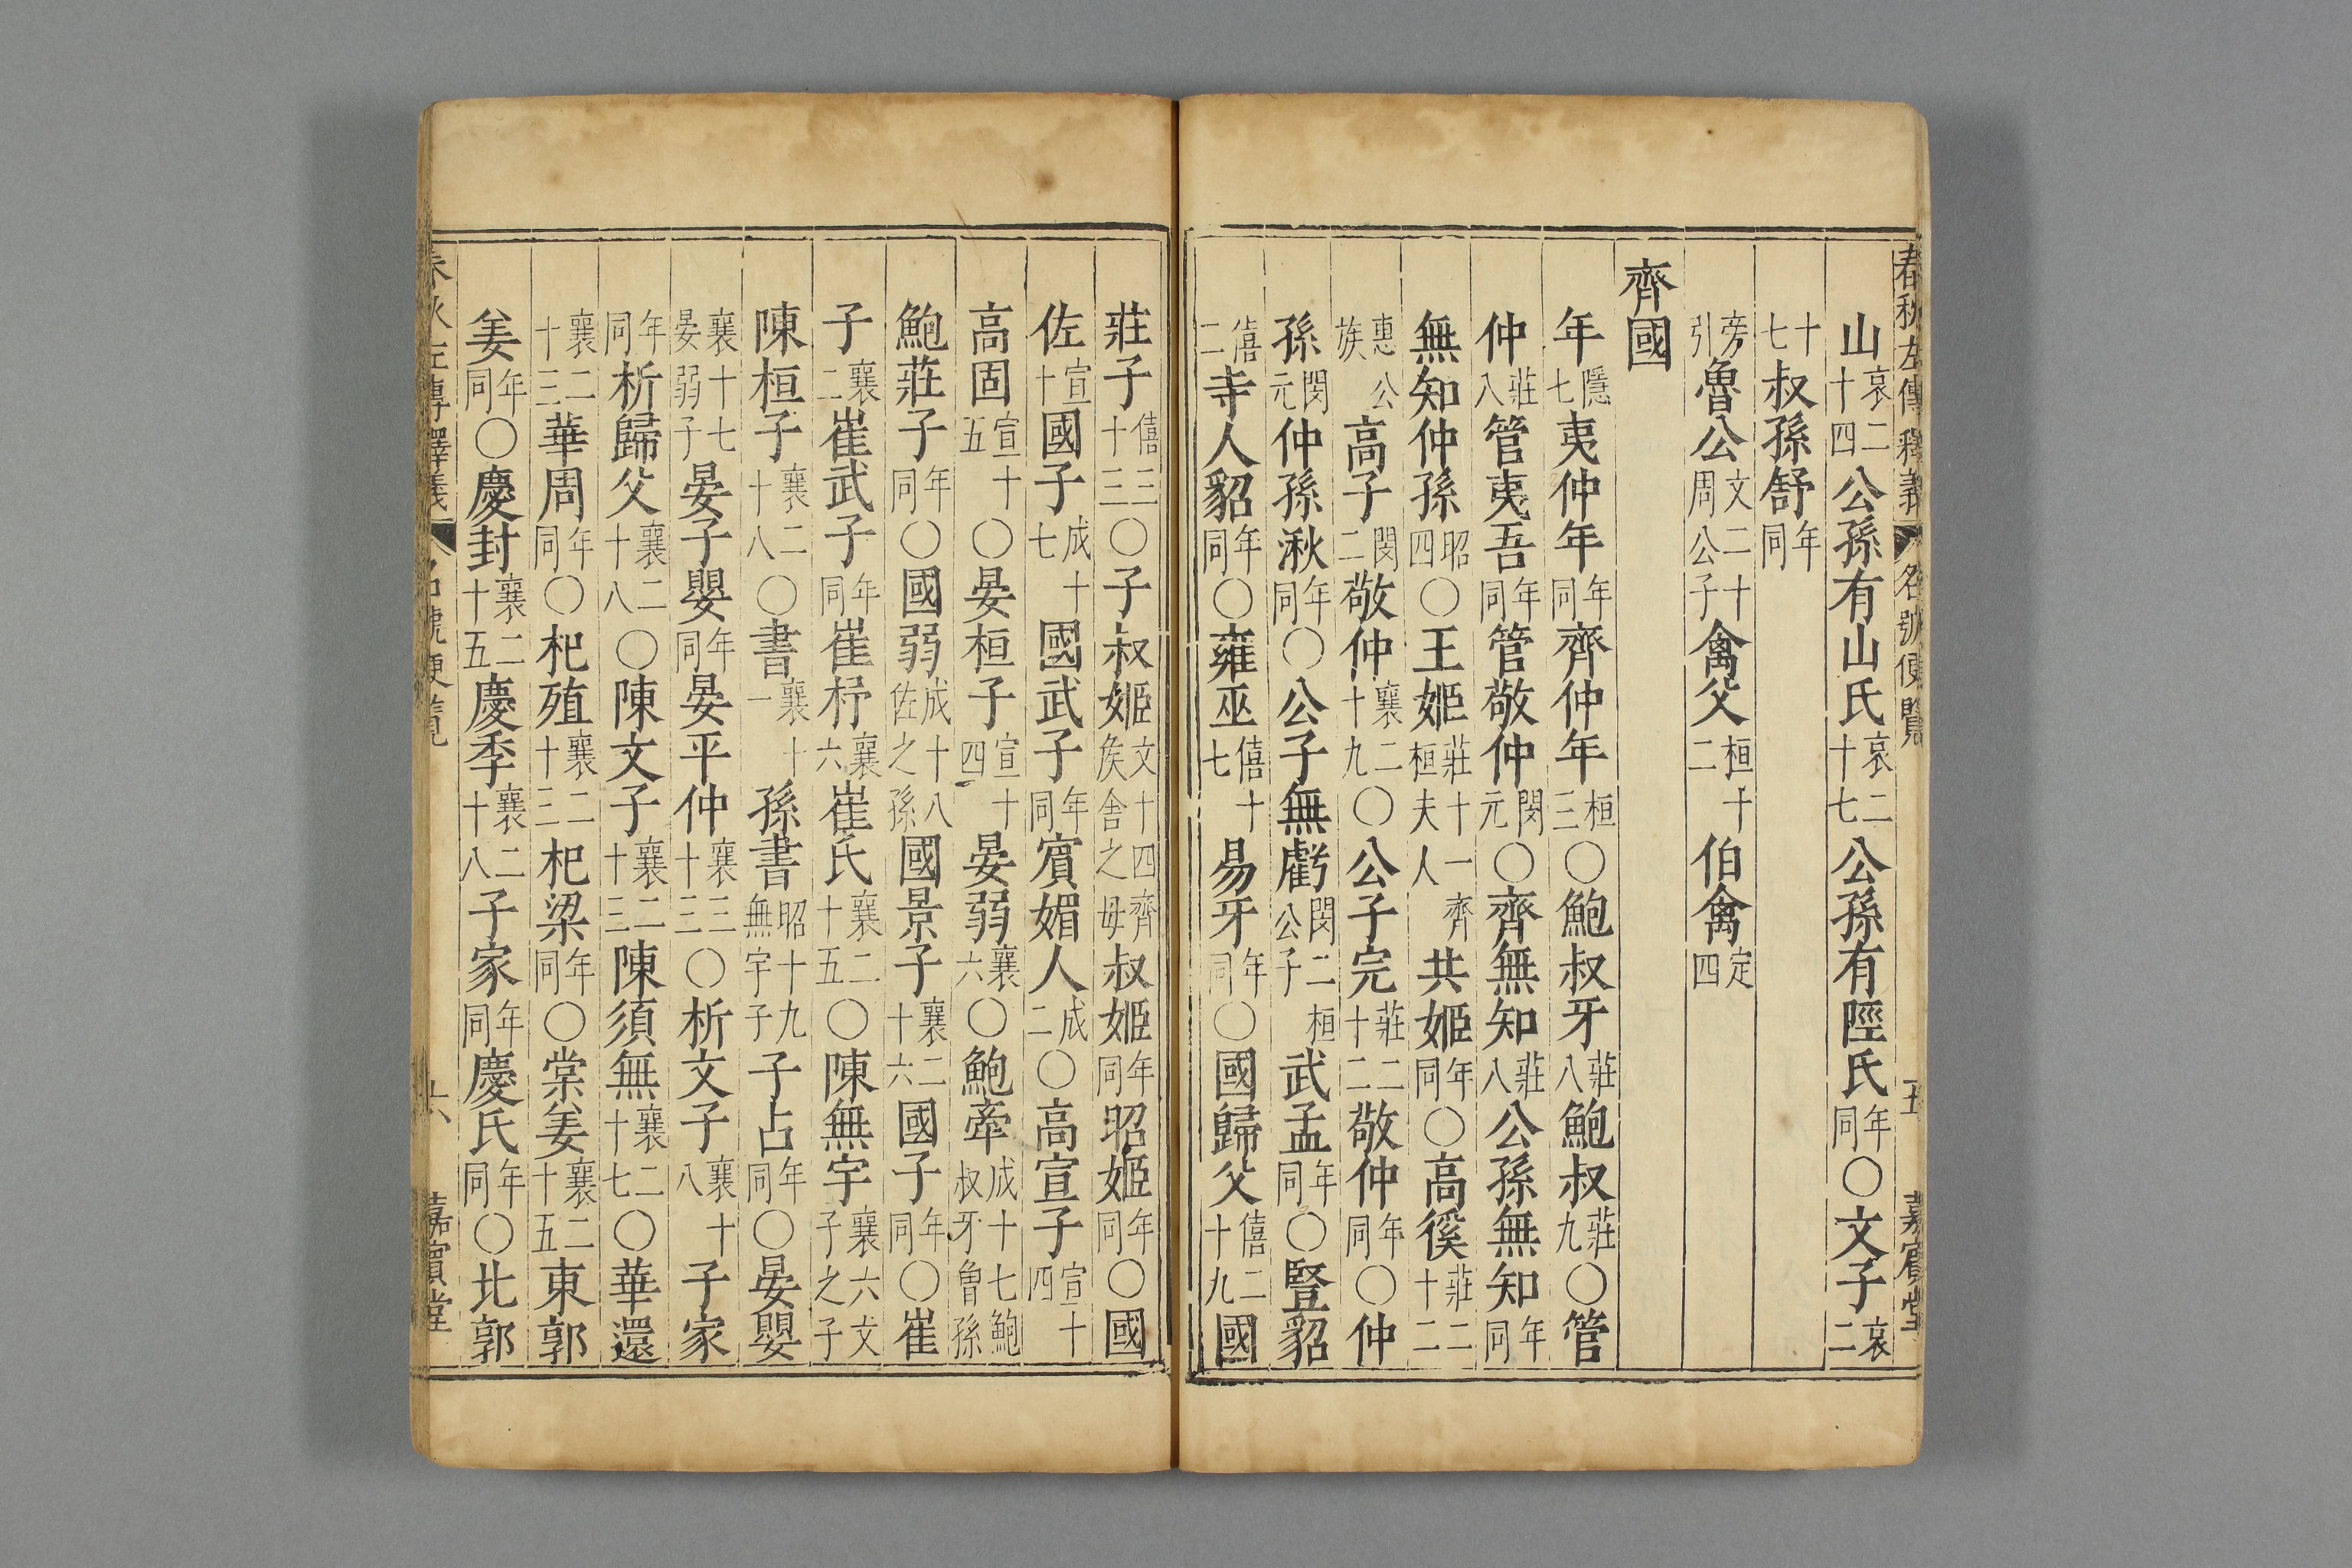 春秋左傳釋義 名號便覽 五 嘉賓堂
山哀二十四公孫有山氏哀二十七公孫有陘氏同年〇文子哀二
十七叔孫舒同年
旁引魯公文二十周公子禽父桓十二伯禽定四
齊國
年隱七夷仲年同年齊仲年桓三〇鮑叔牙莊八鮑叔莊九〇管
仲莊八管夷吾同年管敬仲閔元〇齊無知莊八公孫無知同年
無知仲孫昭四〇王姬莊十一齊桓夫人共姬同年〇高徯莊二十二
惠公族高子閔二敬仲襄二十九〇公子完莊二十二敬仲同年〇仲
孫閔元仲孫湫同年〇公子無虧閔二桓公子武孟同年〇豎貂
僖二寺人貂同年〇雍巫僖十七易牙同年〇國歸父僖二十九國
莊子僖三十三〇子叔姬文十四齊矦舍之母叔姬同年昭姬同年〇國
佐宣十國子成十七國武子同年賔媚人成二〇高宣子宣十四
高固宣十五〇晏桓子宣十四晏弱襄六〇鮑牽成十七鮑叔牙曾孫
鮑莊子同年〇國弱成十八佐之孫國景子襄二十六國子同年〇崔
子襄二崔武子同年崔杼襄六崔氏襄二十五〇陳無宇襄六文子之子
陳桓子襄二十八〇書襄十一孫書昭十九無宇子子占同年〇晏嬰
襄十七晏弱子晏子嬰同年晏平仲襄三十三〇析文子襄十八子家
同年析歸父襄二十八〇陳文子襄二十三陳須無襄二十七〇華還
襄二十三華周同年〇杞殖襄二十三杞梁同年〇棠姜襄二十五東郭
姜同年〇慶封襄二十五慶季襄二十八子家同年慶氏同年〇北郭
春秋左傳釋義 名號便覽 六 嘉賓堂